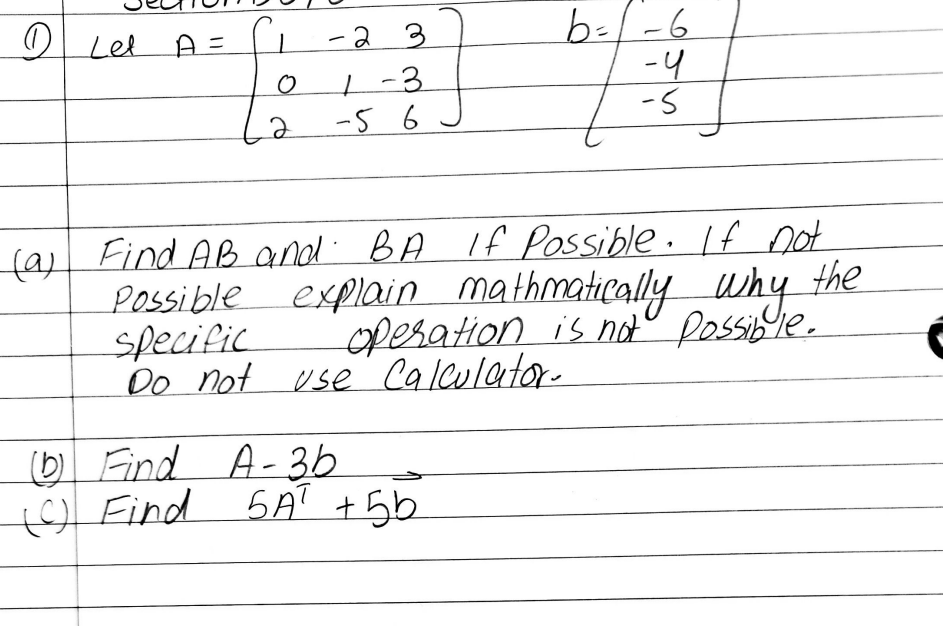 ① Let A = [1 -2 3 b= [-6
0 1 -3 -4
2 -5 6] -5]
(a) Find AB and BA If Possible. If not
Possible explain mathmatically why the
specific operation is not Possible.
Do not use Calculator.
(b) Find A - 3b
(c) Find 5Aᵀ + 5b⃗